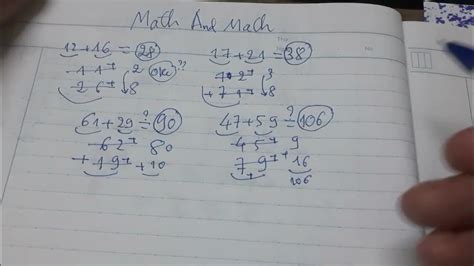 Math And Math
12+16 = 28
17+21 = 38
1 1 + 2 oki ??
2 6 + 8
1 2 + 3
+ 7 1 + 8
61+29 ?= 90
47+59 ?= 106
6 2 + 80
+ 1 9 + +10
4 5 + 9
7 9 + + 16
106